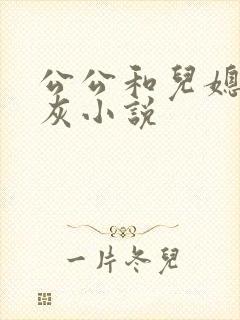 公公和兒媳
灰小説
一片冬兒